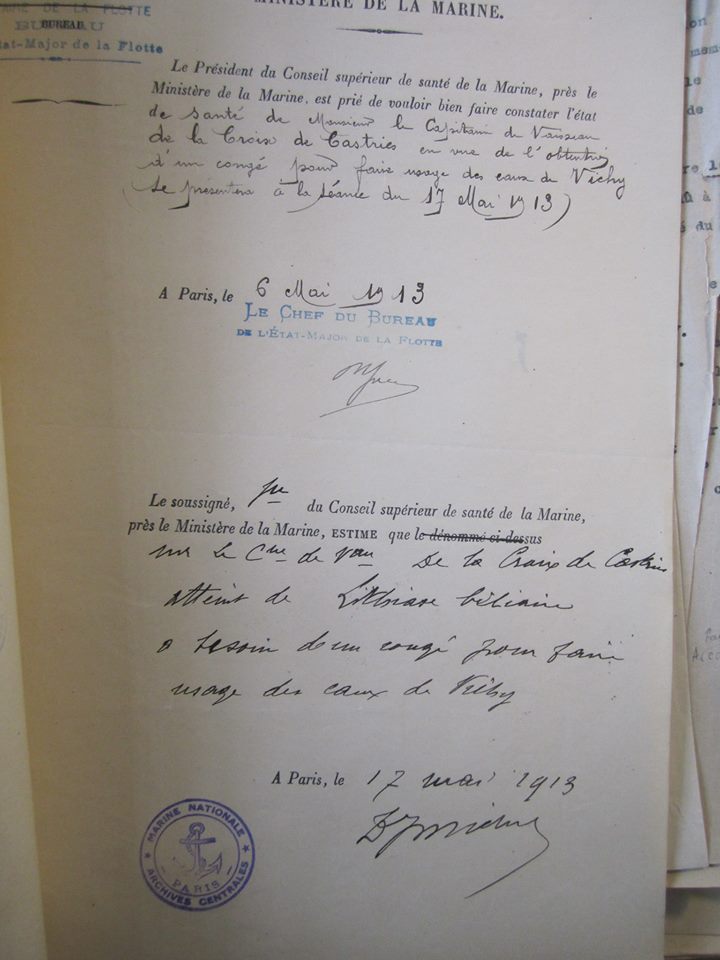 MINISTÈRE DE LA MARINE.
DE LA FLOTTE
BUREAU
État-Major de la Flotte
Le Président du Conseil supérieur de santé de la Marine, près le
Ministère de la Marine, est prié de vouloir bien faire constater l'état
de santé de Monsieur le Capitaine de Vaisseau
de la Croix de Castries en vue de l'obtention
d'un congé pour faire usage des eaux de Vichy
(Se présentera à la séance du 17 Mai 1913)
A Paris, le 6 Mai 1913
LE CHEF DU BUREAU
DE L'ÉTAT-MAJOR DE LA FLOTTE
Le soussigné, du Conseil supérieur de santé de la Marine,
près le Ministère de la Marine, ESTIME que le dénommé ci-dessus
Mr le Cne de Vau De la Croix de Castries
atteint de Lithiase biliaire
a besoin d'un congé pour faire
usage des eaux de Vichy
A Paris, le 17 mai 1913
MARINE NATIONALE
PARIS
ARCHIVES CENTRALES